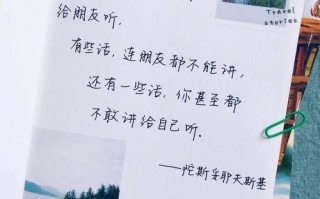 Travel
stories
给朋友听，
有些话，连朋友都不能讲，
还有一些话，你甚至都
不敢讲给自己听。
——陀斯妥耶夫斯基